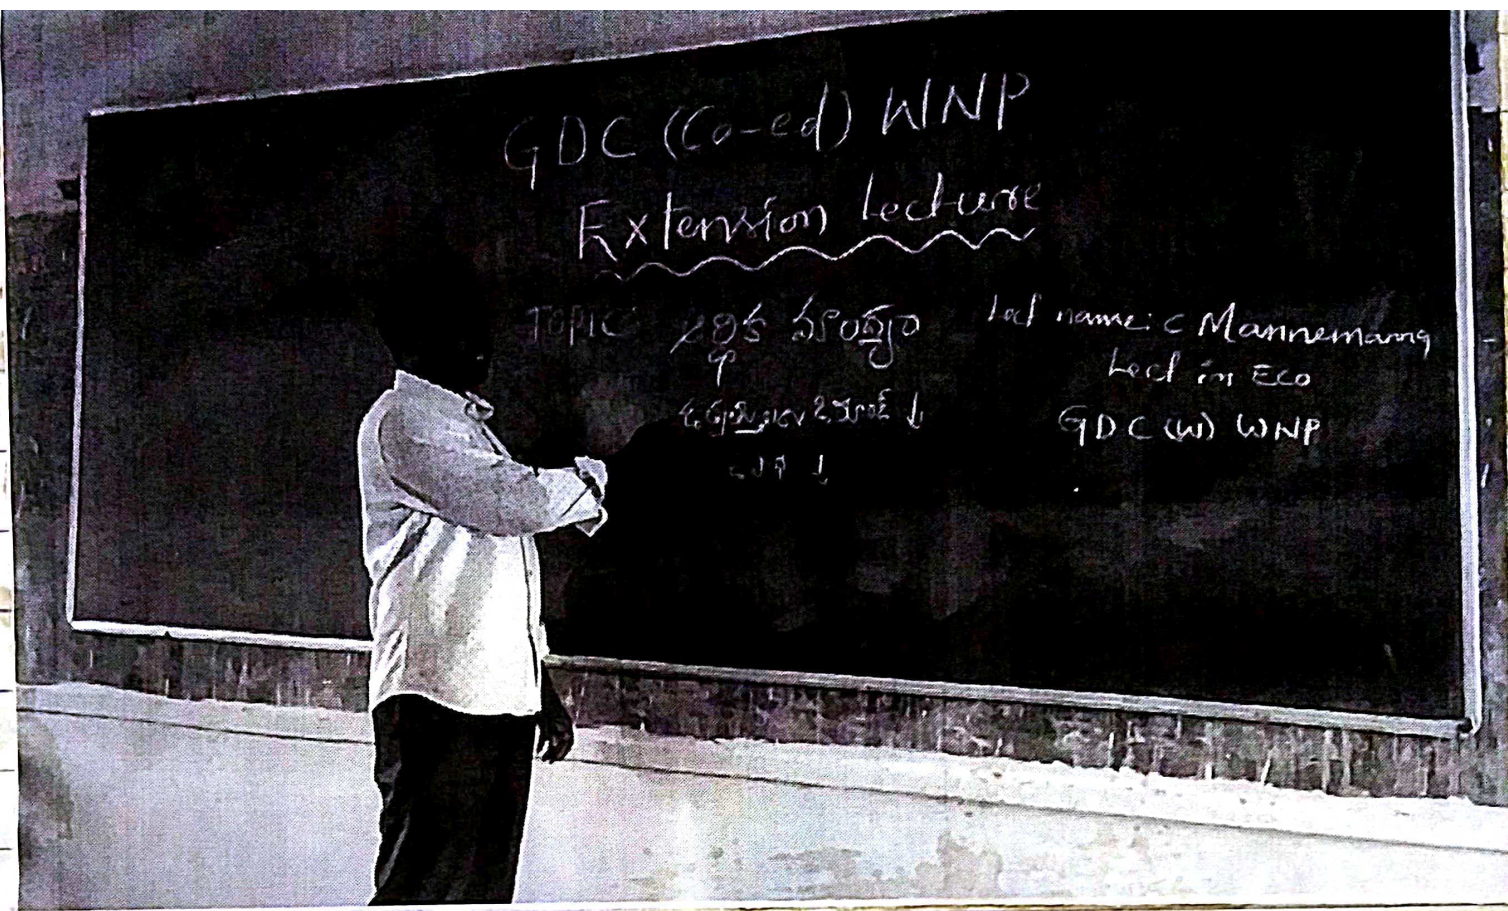 GDC (Co-ed) WNP
Extension Lecture
TOPIC: ఆర్థిక మాంద్యం
Lect name: C Mannemanna
Lect in Eco
GDC (W) WNP